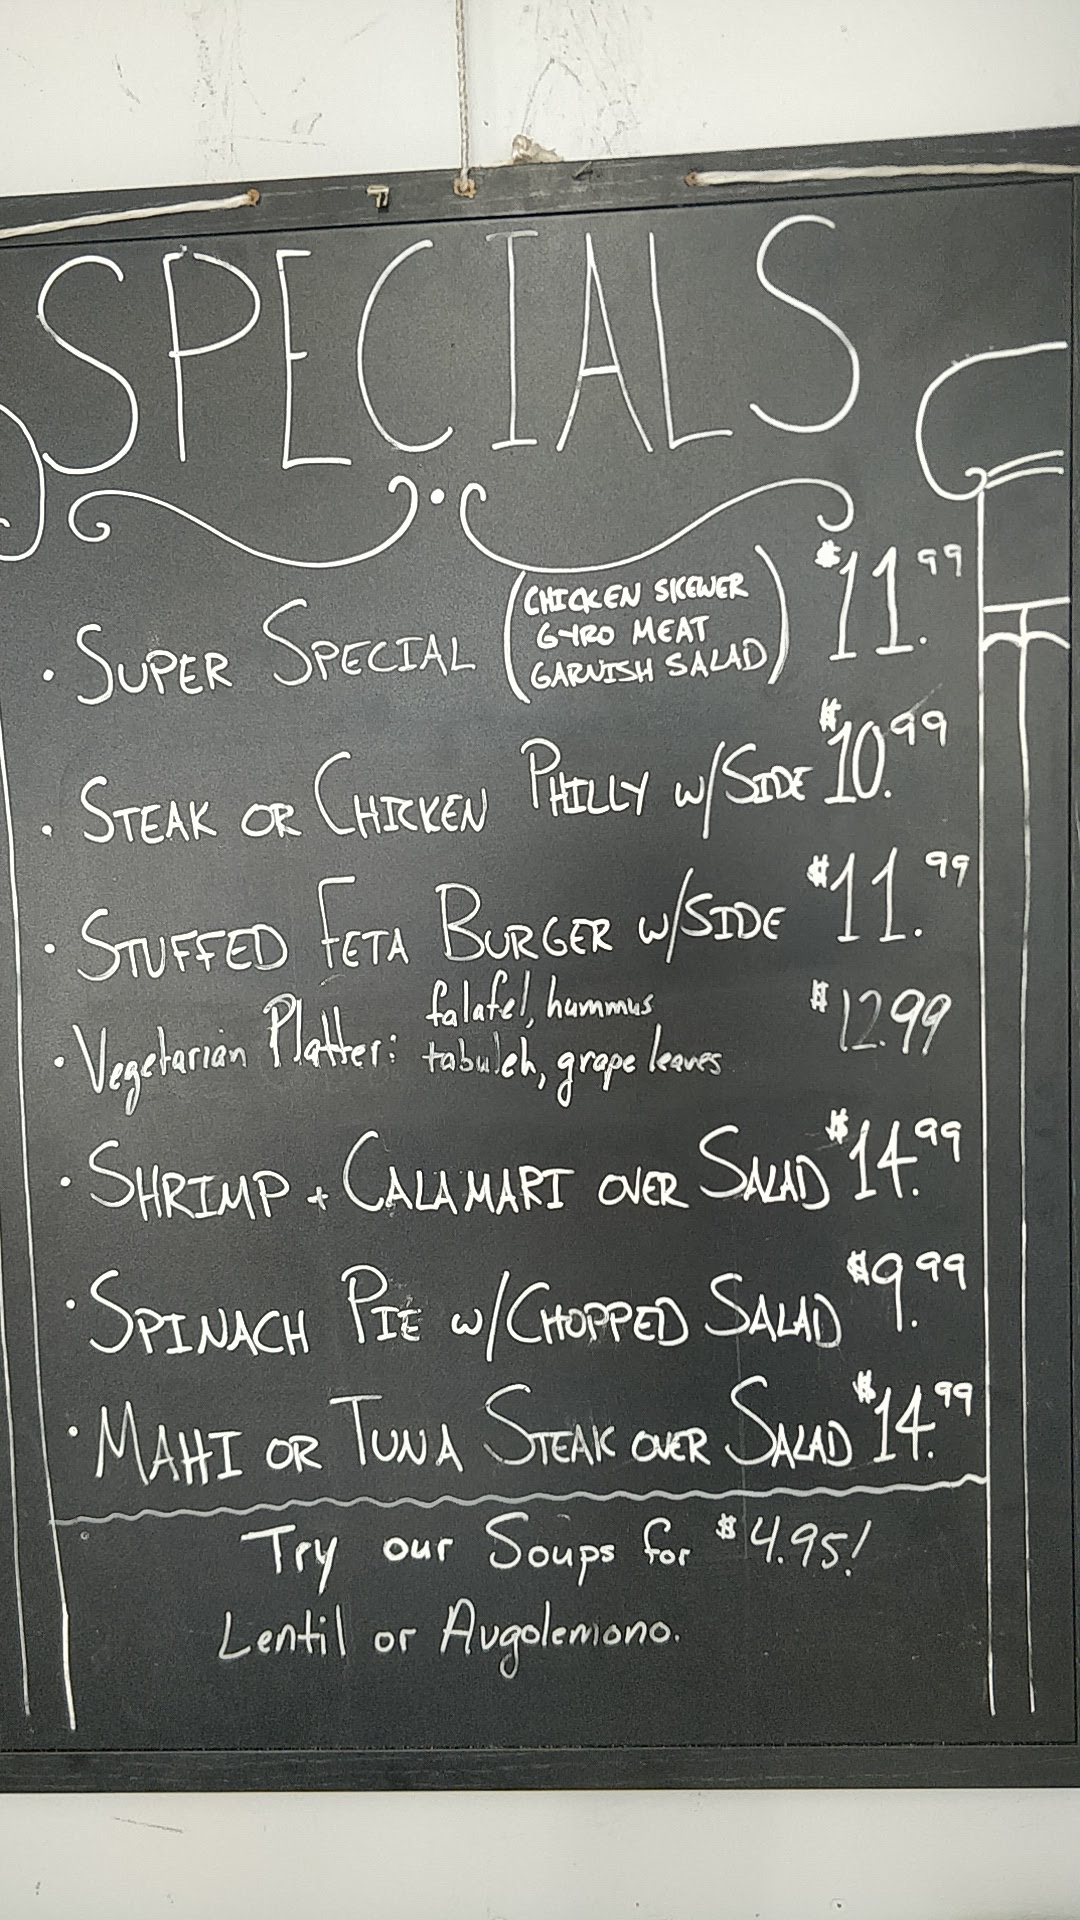 SPECIALS
• SUPER SPECIAL (CHICKEN SKEWER GYRO MEAT GARNISH SALAD) $11.99
• STEAK OR CHICKEN PHILLY W/SIDE $10.99
• STUFFED FETA BURGER W/SIDE $11.99
• Vegetarian Platter: falafel, hummus $12.99
tabuleh, grape leaves
• SHRIMP + CALAMARI OVER SALAD $14.99
• SPINACH PIE W/CHOPPED SALAD $9.99
• MAHI OR TUNA STEAK OVER SALAD $14.99
Try our Soups for $4.95!
Lentil or Avgolemono.